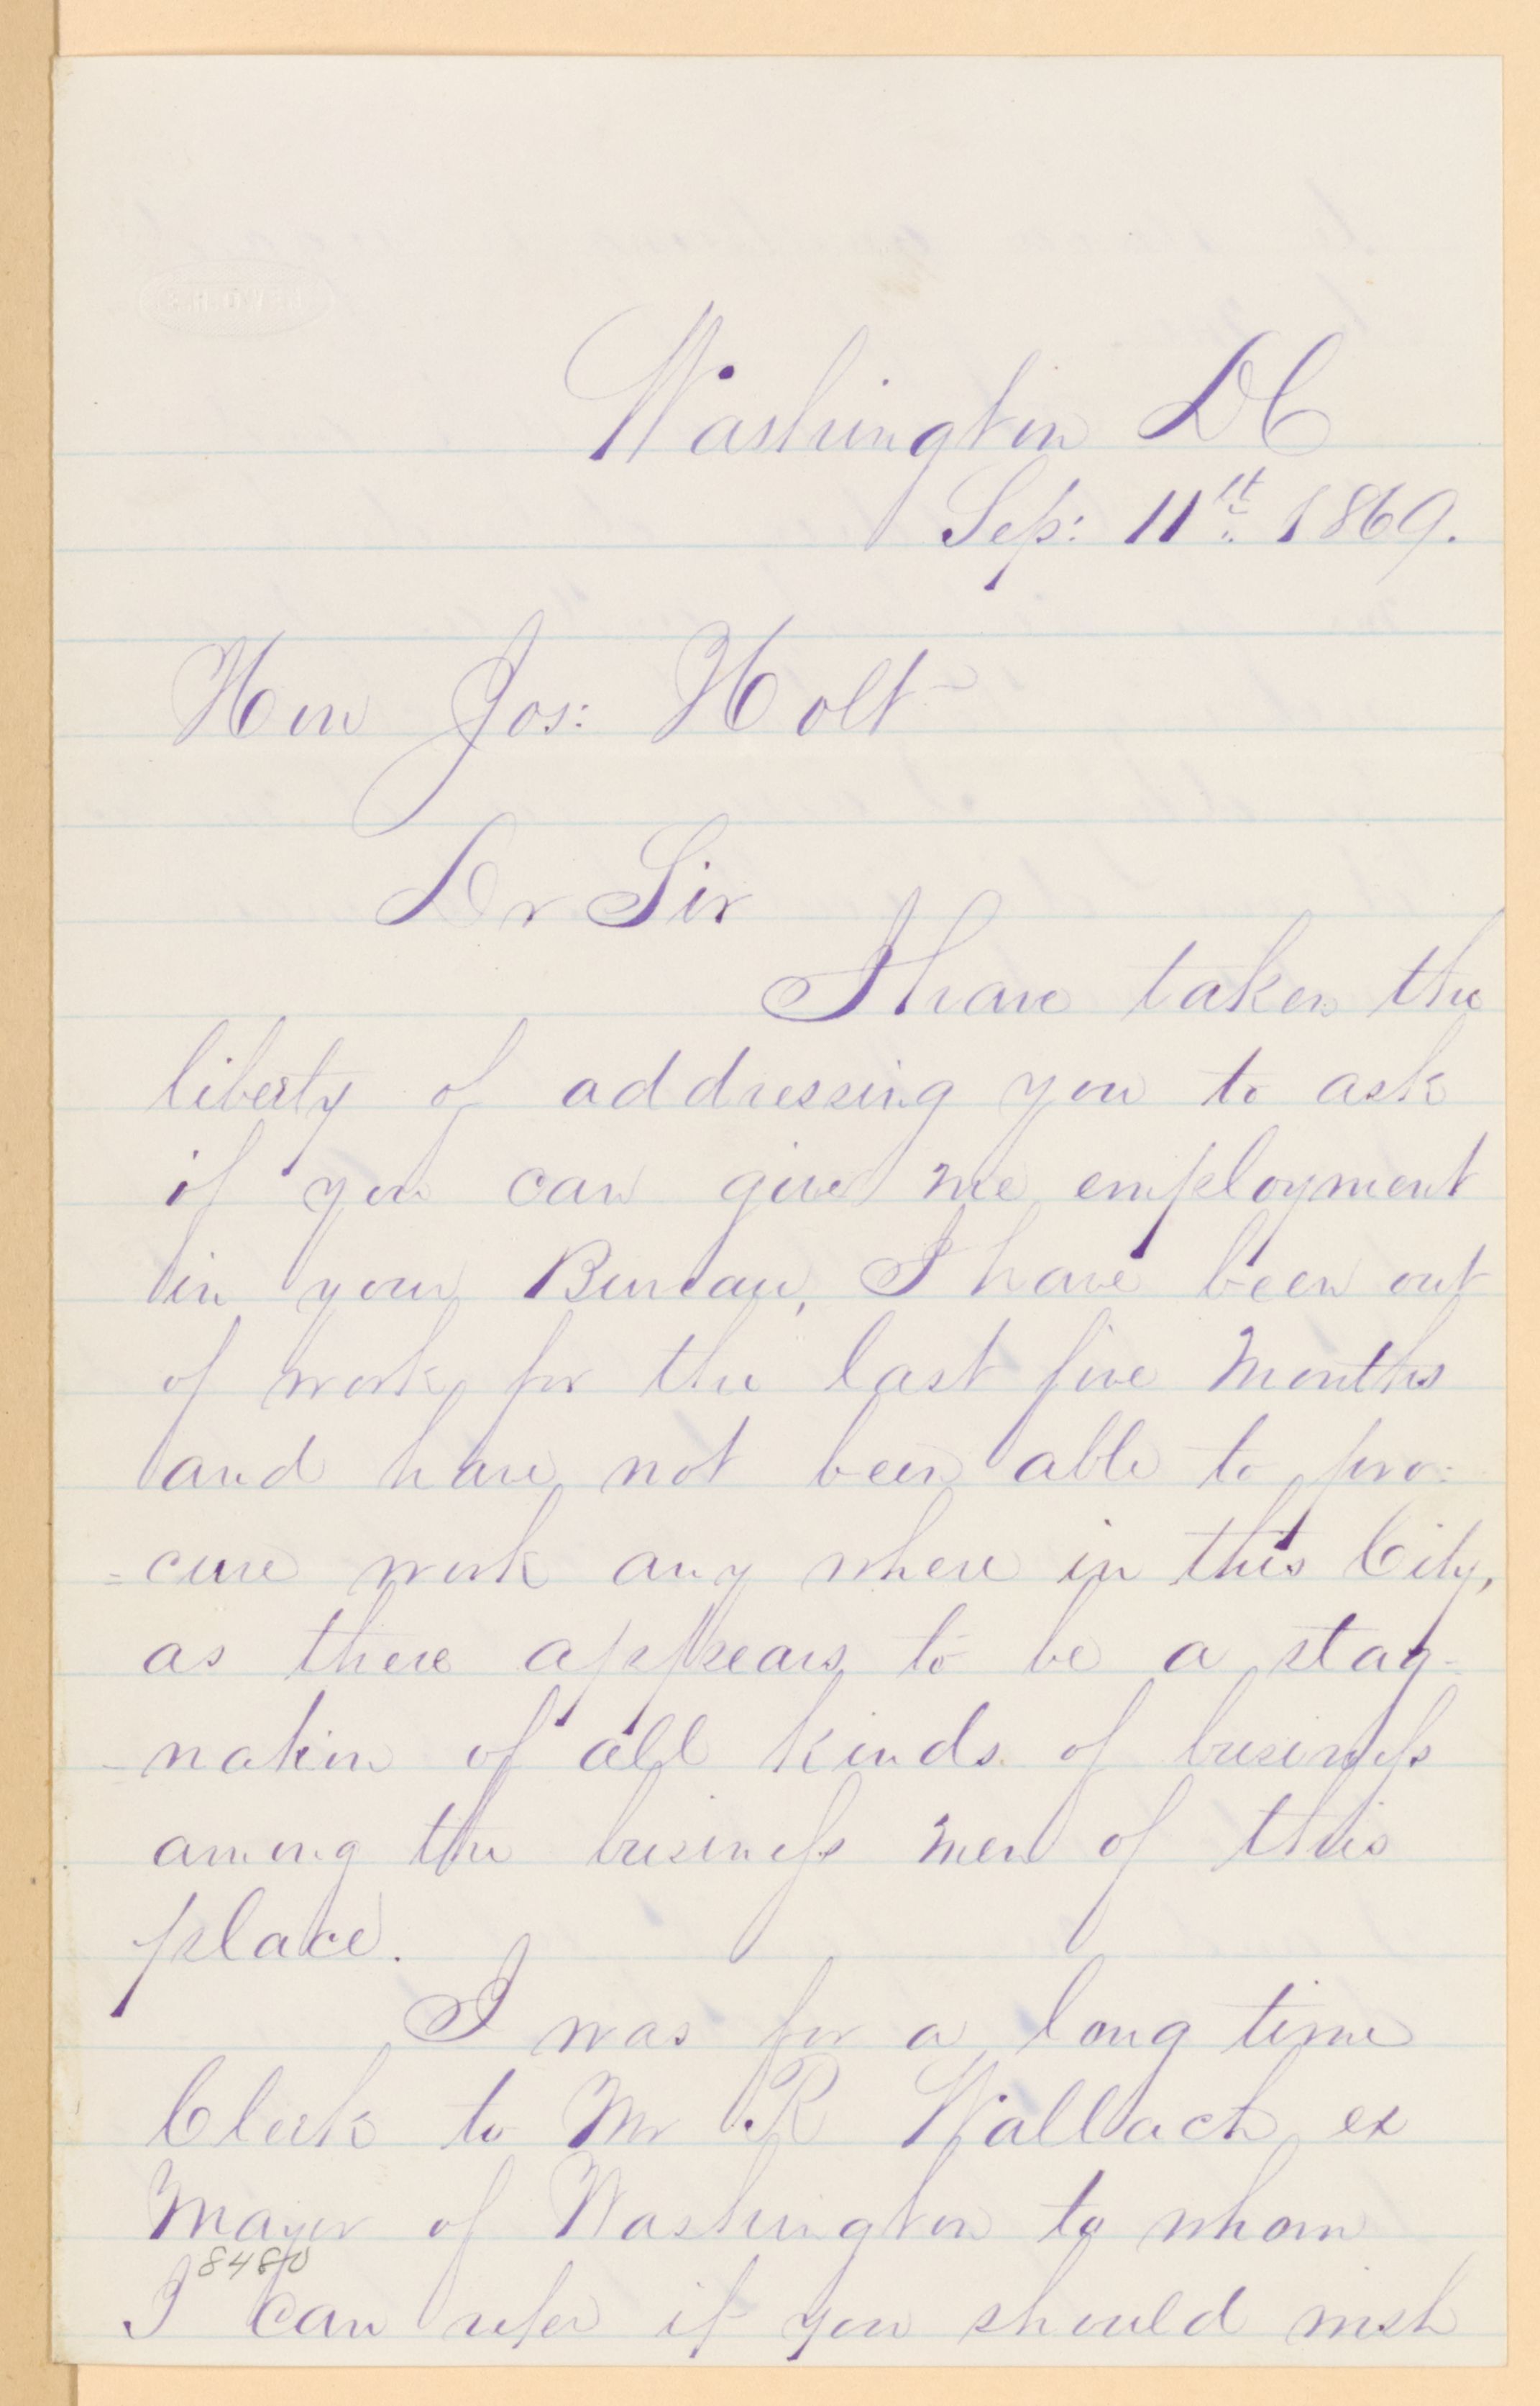 Washington DC
Sep: 11th 1869.
Hon Jos: Holt
Dr Sir
I have taken the
liberty of addressing you to ask
if you can give me employment
in your Bureau, I have been out
of work for the last five months
and have not been able to pro:
=cure work any where in this City,
as there appears to be a stag-
-nation of all kinds of business
among the business men of this
place.
I was for a long time
Clerk to Mr R Wallach ex
Mayor of Washington to whom
8480
I can refer if you should wish